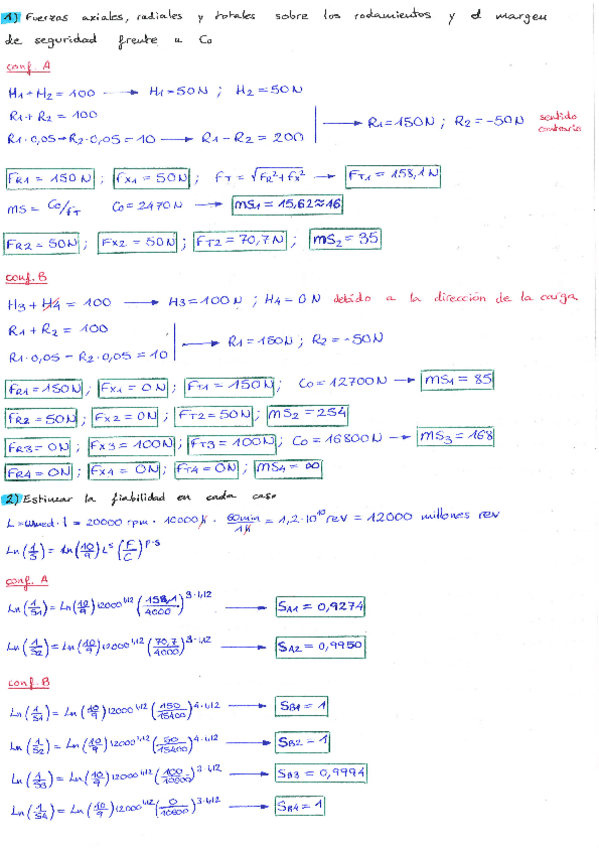 1) Fuerzas axiales, radiales y totales sobre los rodamientos y el margen
de seguridad frente a Co
conf. A
H1+H2 = 100 → H1=50N ; H2=50N
R1+R2 = 100
R1·0,05-R2·0,05=10 → R1-R2 = 200
→ R1=150N ; R2=-50N sentido contrario
FR1 = 150N ; FX1 = 50N ; FT = √FR²+FX² → FT1 = 158,1N
MS = Co/FT Co=2470N → MS1 = 15,62≈16
FR2 = 50N ; FX2 = 50N ; FT2 = 70,7N ; MS2 = 35
conf. B
H3 + H4 = 100 → H3=100N ; H4=0N debido a la dirección de la carga
R1 + R2 = 100
R1·0,05 - R2·0,05 = 10
→ R1=150N ; R2=-50N
FR1=150N ; FX1 = 0N ; FT1 = 150N ; Co=12700N → MS1 = 85
FR2 = 50N ; FX2 = 0N ; FT2=50N ; MS2=254
FR3=0N ; FX3=100N ; FT3=100N ; Co=16800N → MS3=168
FR4=0N ; FX4=0N ; FT4=0N ; MS4=∞
2) Estimar la fiabilidad en cada caso
L=ωmed·l = 20000 rpm · 10000h · 60min/1h = 1,2·10¹⁰ rev = 12000 millones rev
Ln(1/S) = Ln(10/9) L^s (F/C)^p·s
conf. A
Ln(1/S1) = Ln(10/9) 12000^1,12 (158,1/4000)^3·1,12 → SA1 = 0,9274
Ln(1/S2) = Ln(10/9) 12000^1,12 (70,7/4000)^3·1,12 → SA2 = 0,9950
conf. B
Ln(1/S1) = Ln(10/9) 12000^1,12 (150/15400)^4·1,12 → SB1 = 1
Ln(1/S2) = Ln(10/9) 12000^1,12 (50/15400)^4·1,12 → SB2 = 1
Ln(1/S3) = Ln(10/9) 12000^1,12 (100/10800)^3·1,12 → SB3 = 0,9994
Ln(1/S4) = Ln(10/9) 12000^1,12 (0/10800)^3·1,12 → SB4 = 1